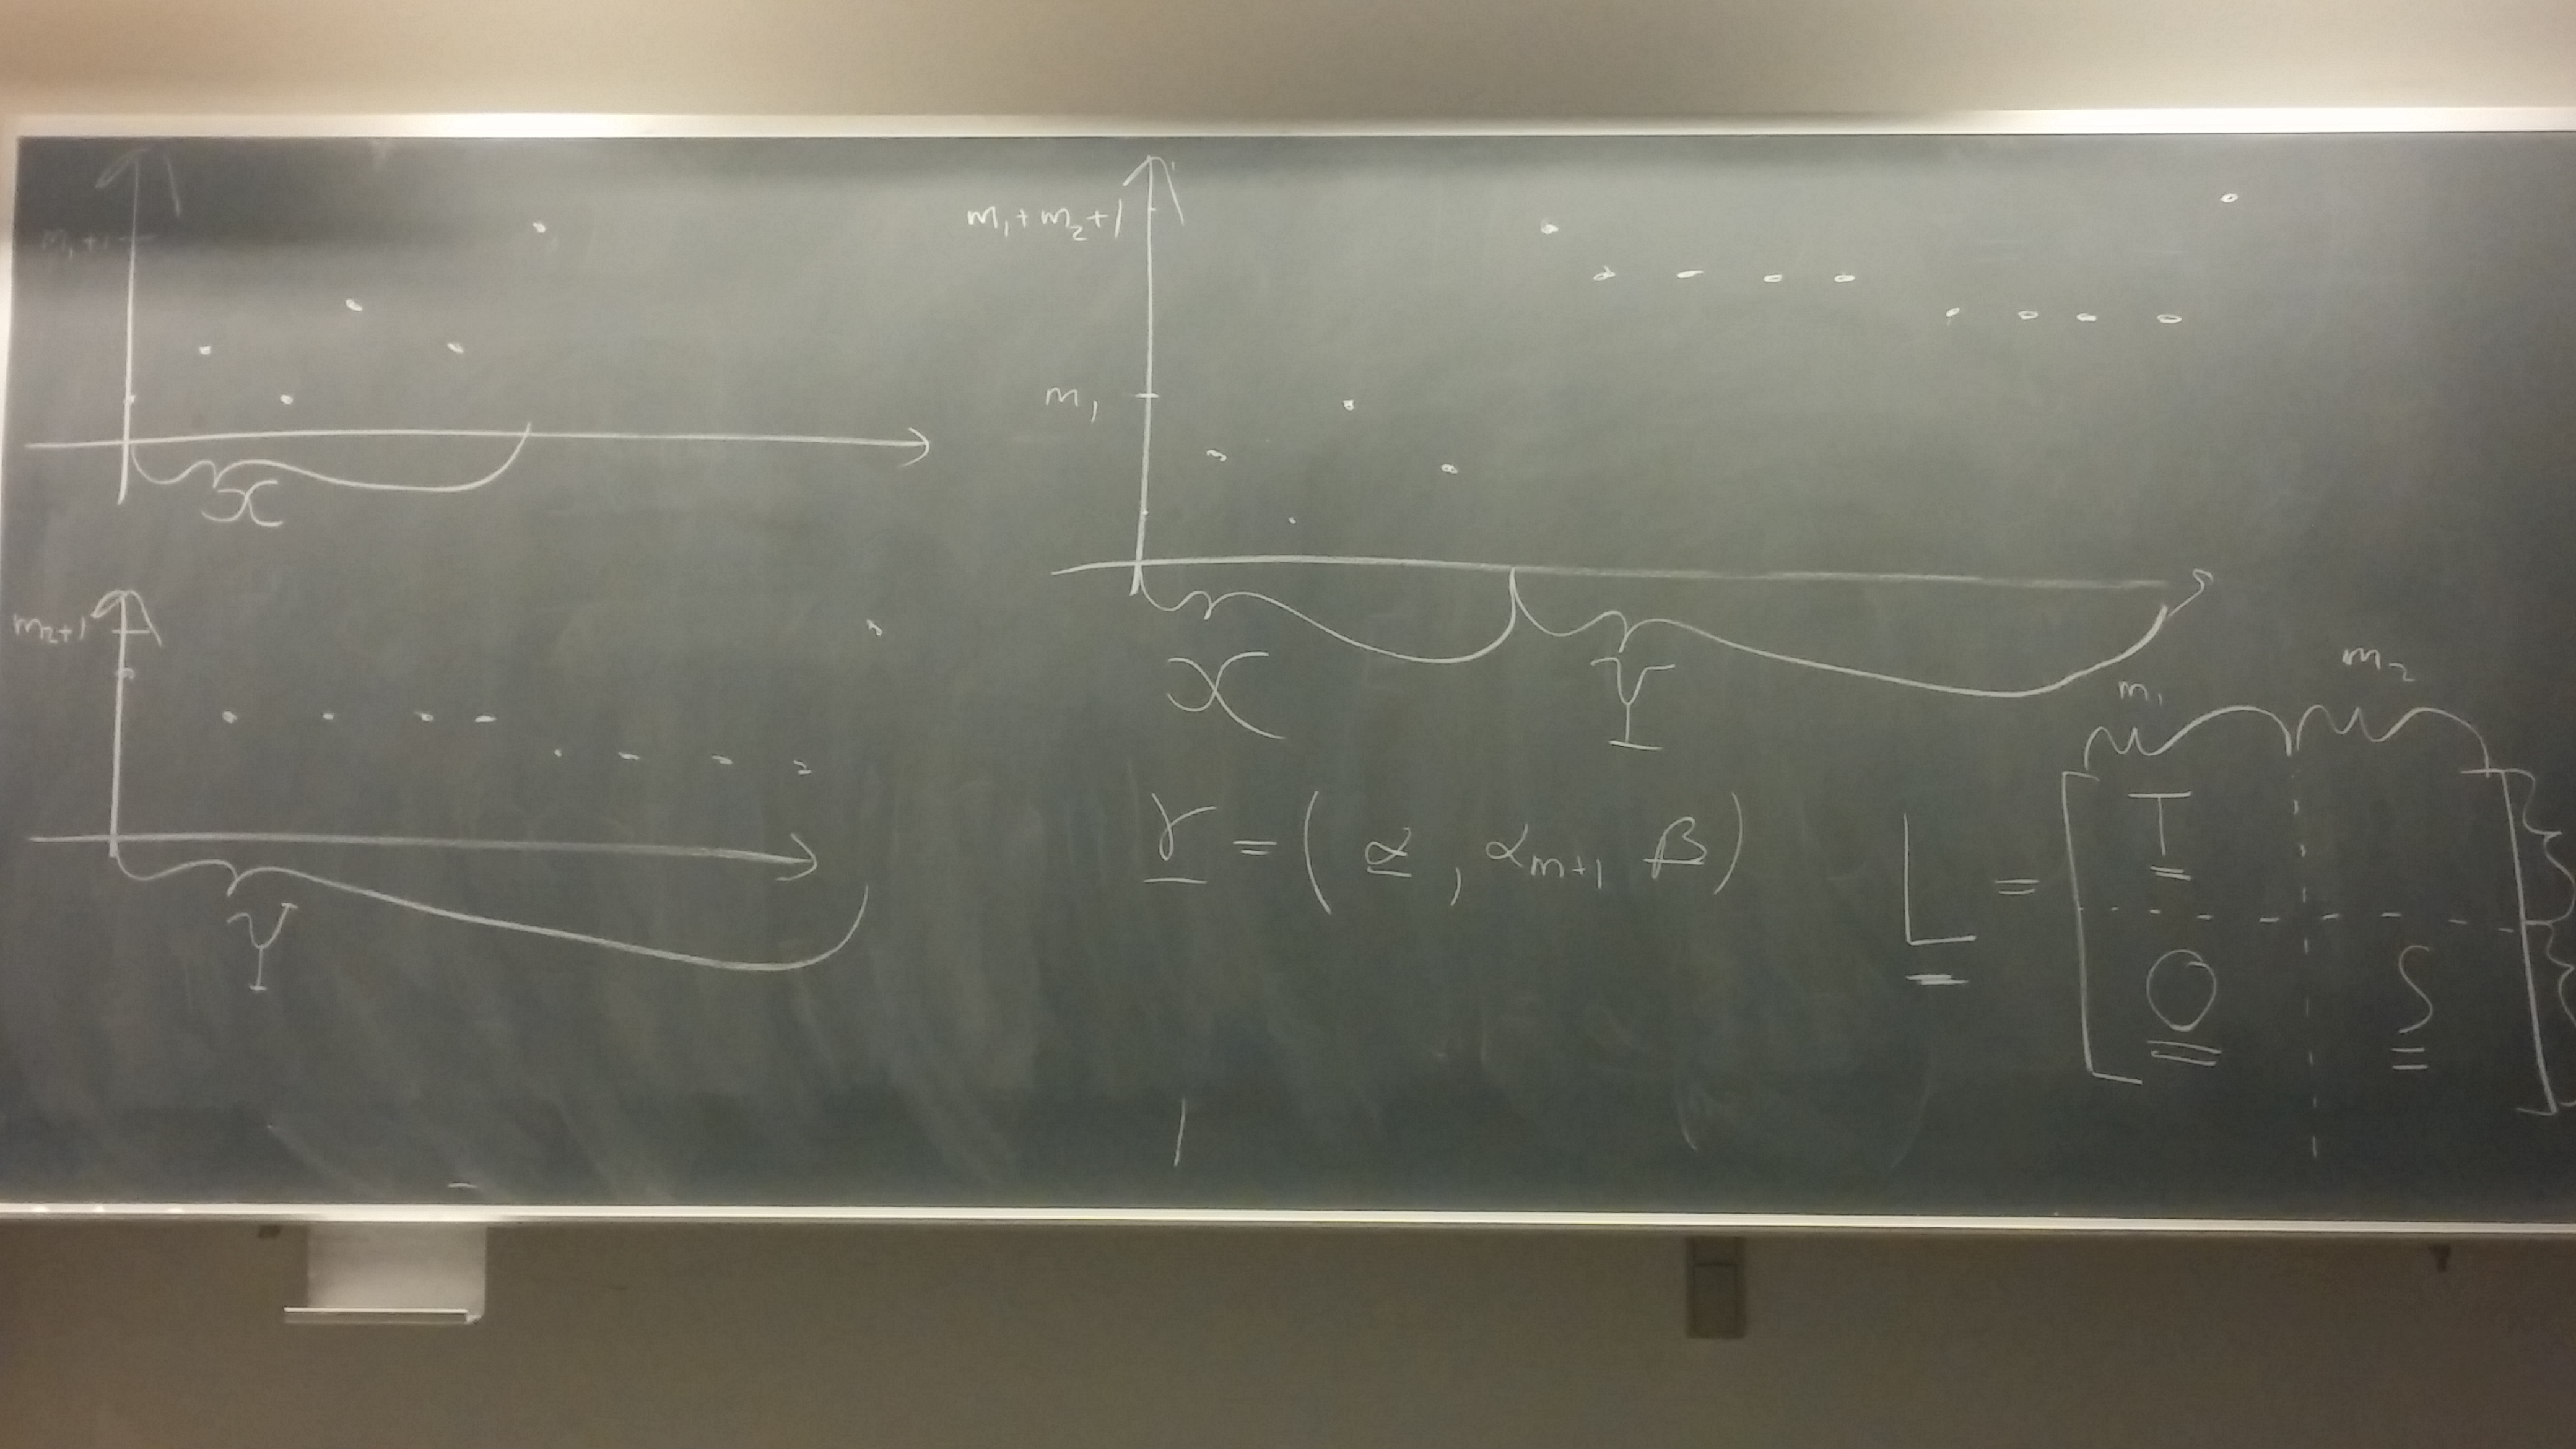 m₁+1
X
m₂+1
Y
m₁+m₂+1
m₁
X Y
γ = (α, α_{m+1} β)
m₁ m₂
L = [ T
O S ]